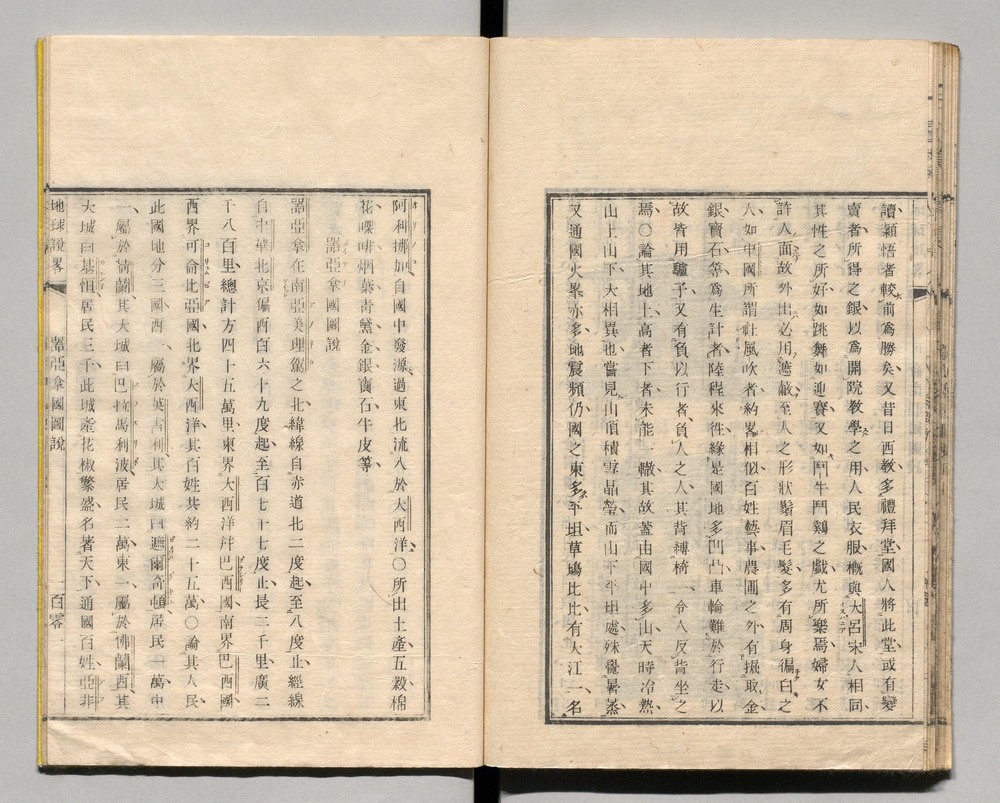 讀穎悟者較前爲勝矣又昔日西教多禮拜堂國人將此堂或有變
賣者所得之銀以爲開院教學之用人民衣服槪與大呂宋人相同
其性之所好如跳舞如迎賽又如鬥牛鬥鷄之戲尤所樂焉婦女不
許人面故外出必用遮蔽至人之形狀鬚眉毛髮多有周身徧白之
人如中國所謂社風吹者約畧相似百姓藝事農圃之外有掘取金
銀寶石等爲生計者陸程來往緣是國地多凹凸車輪難於行走以
故皆用驢子又有負以行者負人之人其背縛椅一令人反背坐之
焉〇論其地土高者下者未能一轍其故蓋由國中多山天時冷熱
山上山下大相異也嘗見山頂積雪晶瑩而山下平坦處殊覺暑蒸
又通國火累亦多地震頻仍國之東多平坦草場比比有大江一名
阿利挪加自國中發源過東北流入於大西洋〇所出土產五穀棉
花㗎啡烟葉青黛金銀寶石牛皮等
噐亞拿國圖說
噐亞拿在南亞美理駕之北緯線自赤道北二度起至八度止經線
自中華北京偏西百六十九度起至百七十七度止長二千里廣二
千八百里總計方四十五萬里東界大西洋幷巴西國南界巴西國
西界可侖比亞國北界大西洋其百姓共約二十五萬〇論其人民
此國地分三國西一屬於英吉利其大城曰遮爾奇頓居民一萬中
一屬於荷蘭其大城曰巴拉馬利波居民二萬東一屬於佛蘭西其
大城曰基恒居民三千此城產花椒繁盛名著天下通國百姓亞非
地球說畧 噐亞拿國圖說 一百零